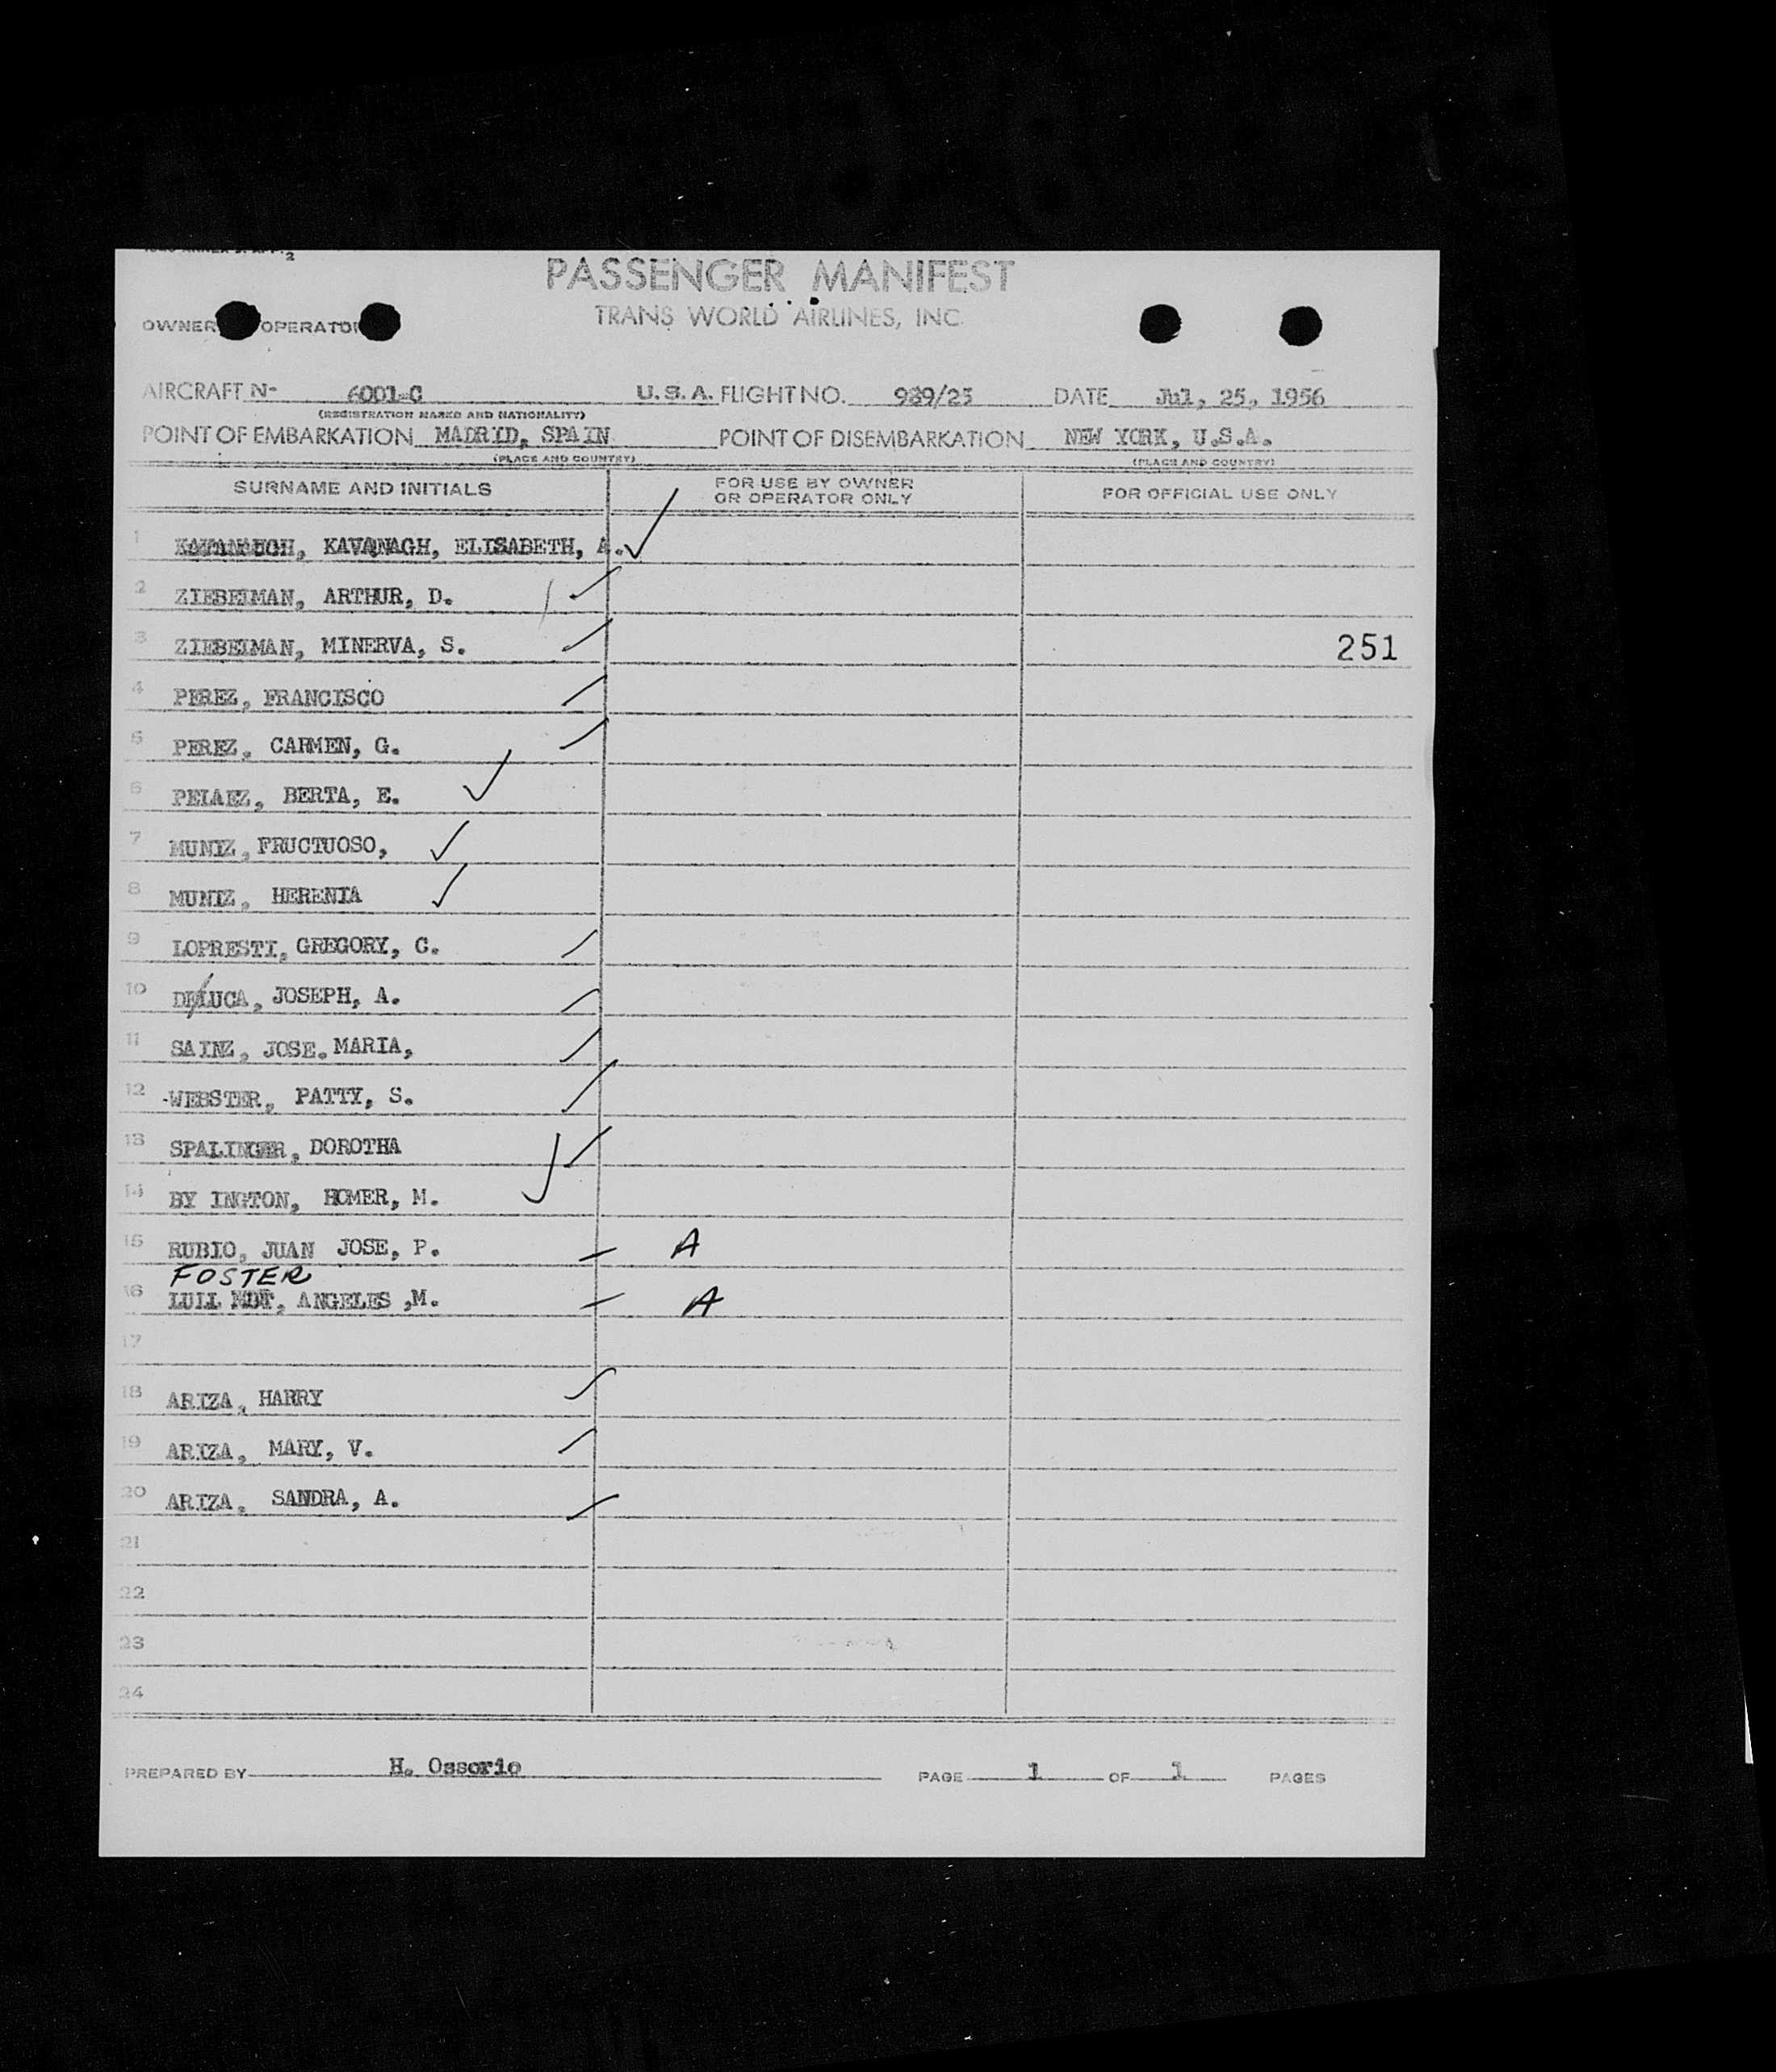 PASSENGER MANIFEST
TRANS WORLD AIRLINES, INC.
OWNER OPERATOR
AIRCRAFT N- 6001-C U.S.A. FLIGHT NO. 939/25 DATE Jul, 25, 1956
(REGISTRATION MARKS AND NATIONALITY)
POINT OF EMBARKATION MADRID, SPAIN POINT OF DISEMBARKATION NEW YORK, U.S.A.
(PLACE AND COUNTRY) (PLACE AND COUNTRY)
SURNAME AND INITIALS FOR USE BY OWNER OR OPERATOR ONLY FOR OFFICIAL USE ONLY
1 KAVANAGH, ELISABETH, A.
2 ZIEBELMAN, ARTHUR, D.
3 ZIEBELMAN, MINERVA, S. 251
4 PEREZ, FRANCISCO
5 PEREZ, CARMEN, G.
6 PELAEZ, BERTA, E.
7 MUNIZ, FRUCTUOSO,
8 MUNIZ, HERENIA
9 LOPRESTI, GREGORY, C.
10 DE/LUCA, JOSEPH, A.
11 SAINZ, JOSE. MARIA,
12 -WEBSTER, PATTY, S.
13 SPALINGER, DOROTHA
14 BY INGTON, HOMER, M.
15 RUBIO, JUAN JOSE, P. A
FOSTER
16 LULL, ANGELES ,M. A
17
18 ARIZA, HARRY
19 ARIZA, MARY, V.
20 ARIZA, SANDRA, A.
21
22
23
24
PREPARED BY H. Ossorio PAGE 1 OF 1 PAGES